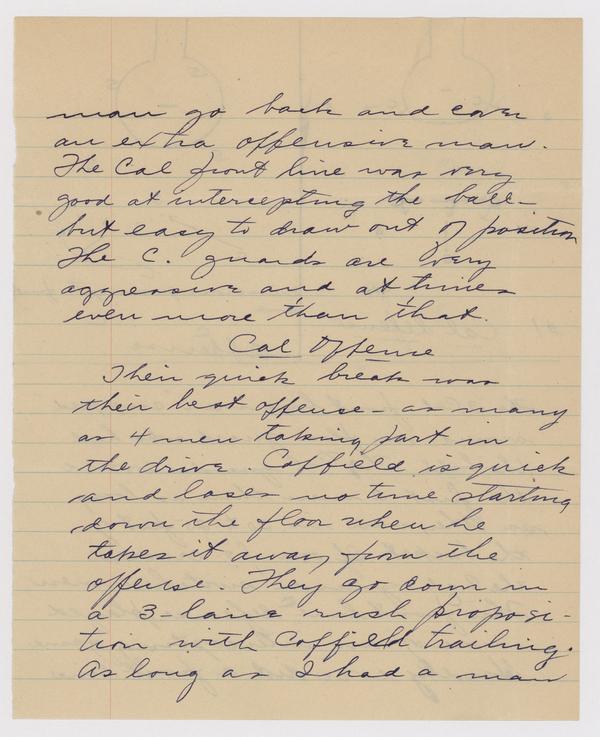 man go back and cover
an extra offensive man.
The Cal front line was very
good at intercepting the ball -
but easy to draw out of position
The C. guards are very
aggressive and at times
even more than that.
Cal Offense
Their quick break was
their best offense - as many
as 4 men taking part in
the drive. Coffield is quick
and loses no time starting
down the floor when he
takes it away from the
offense. They go down in
a 3-lane rush proposi-
tion with Coffield trailing.
As long as I had a man